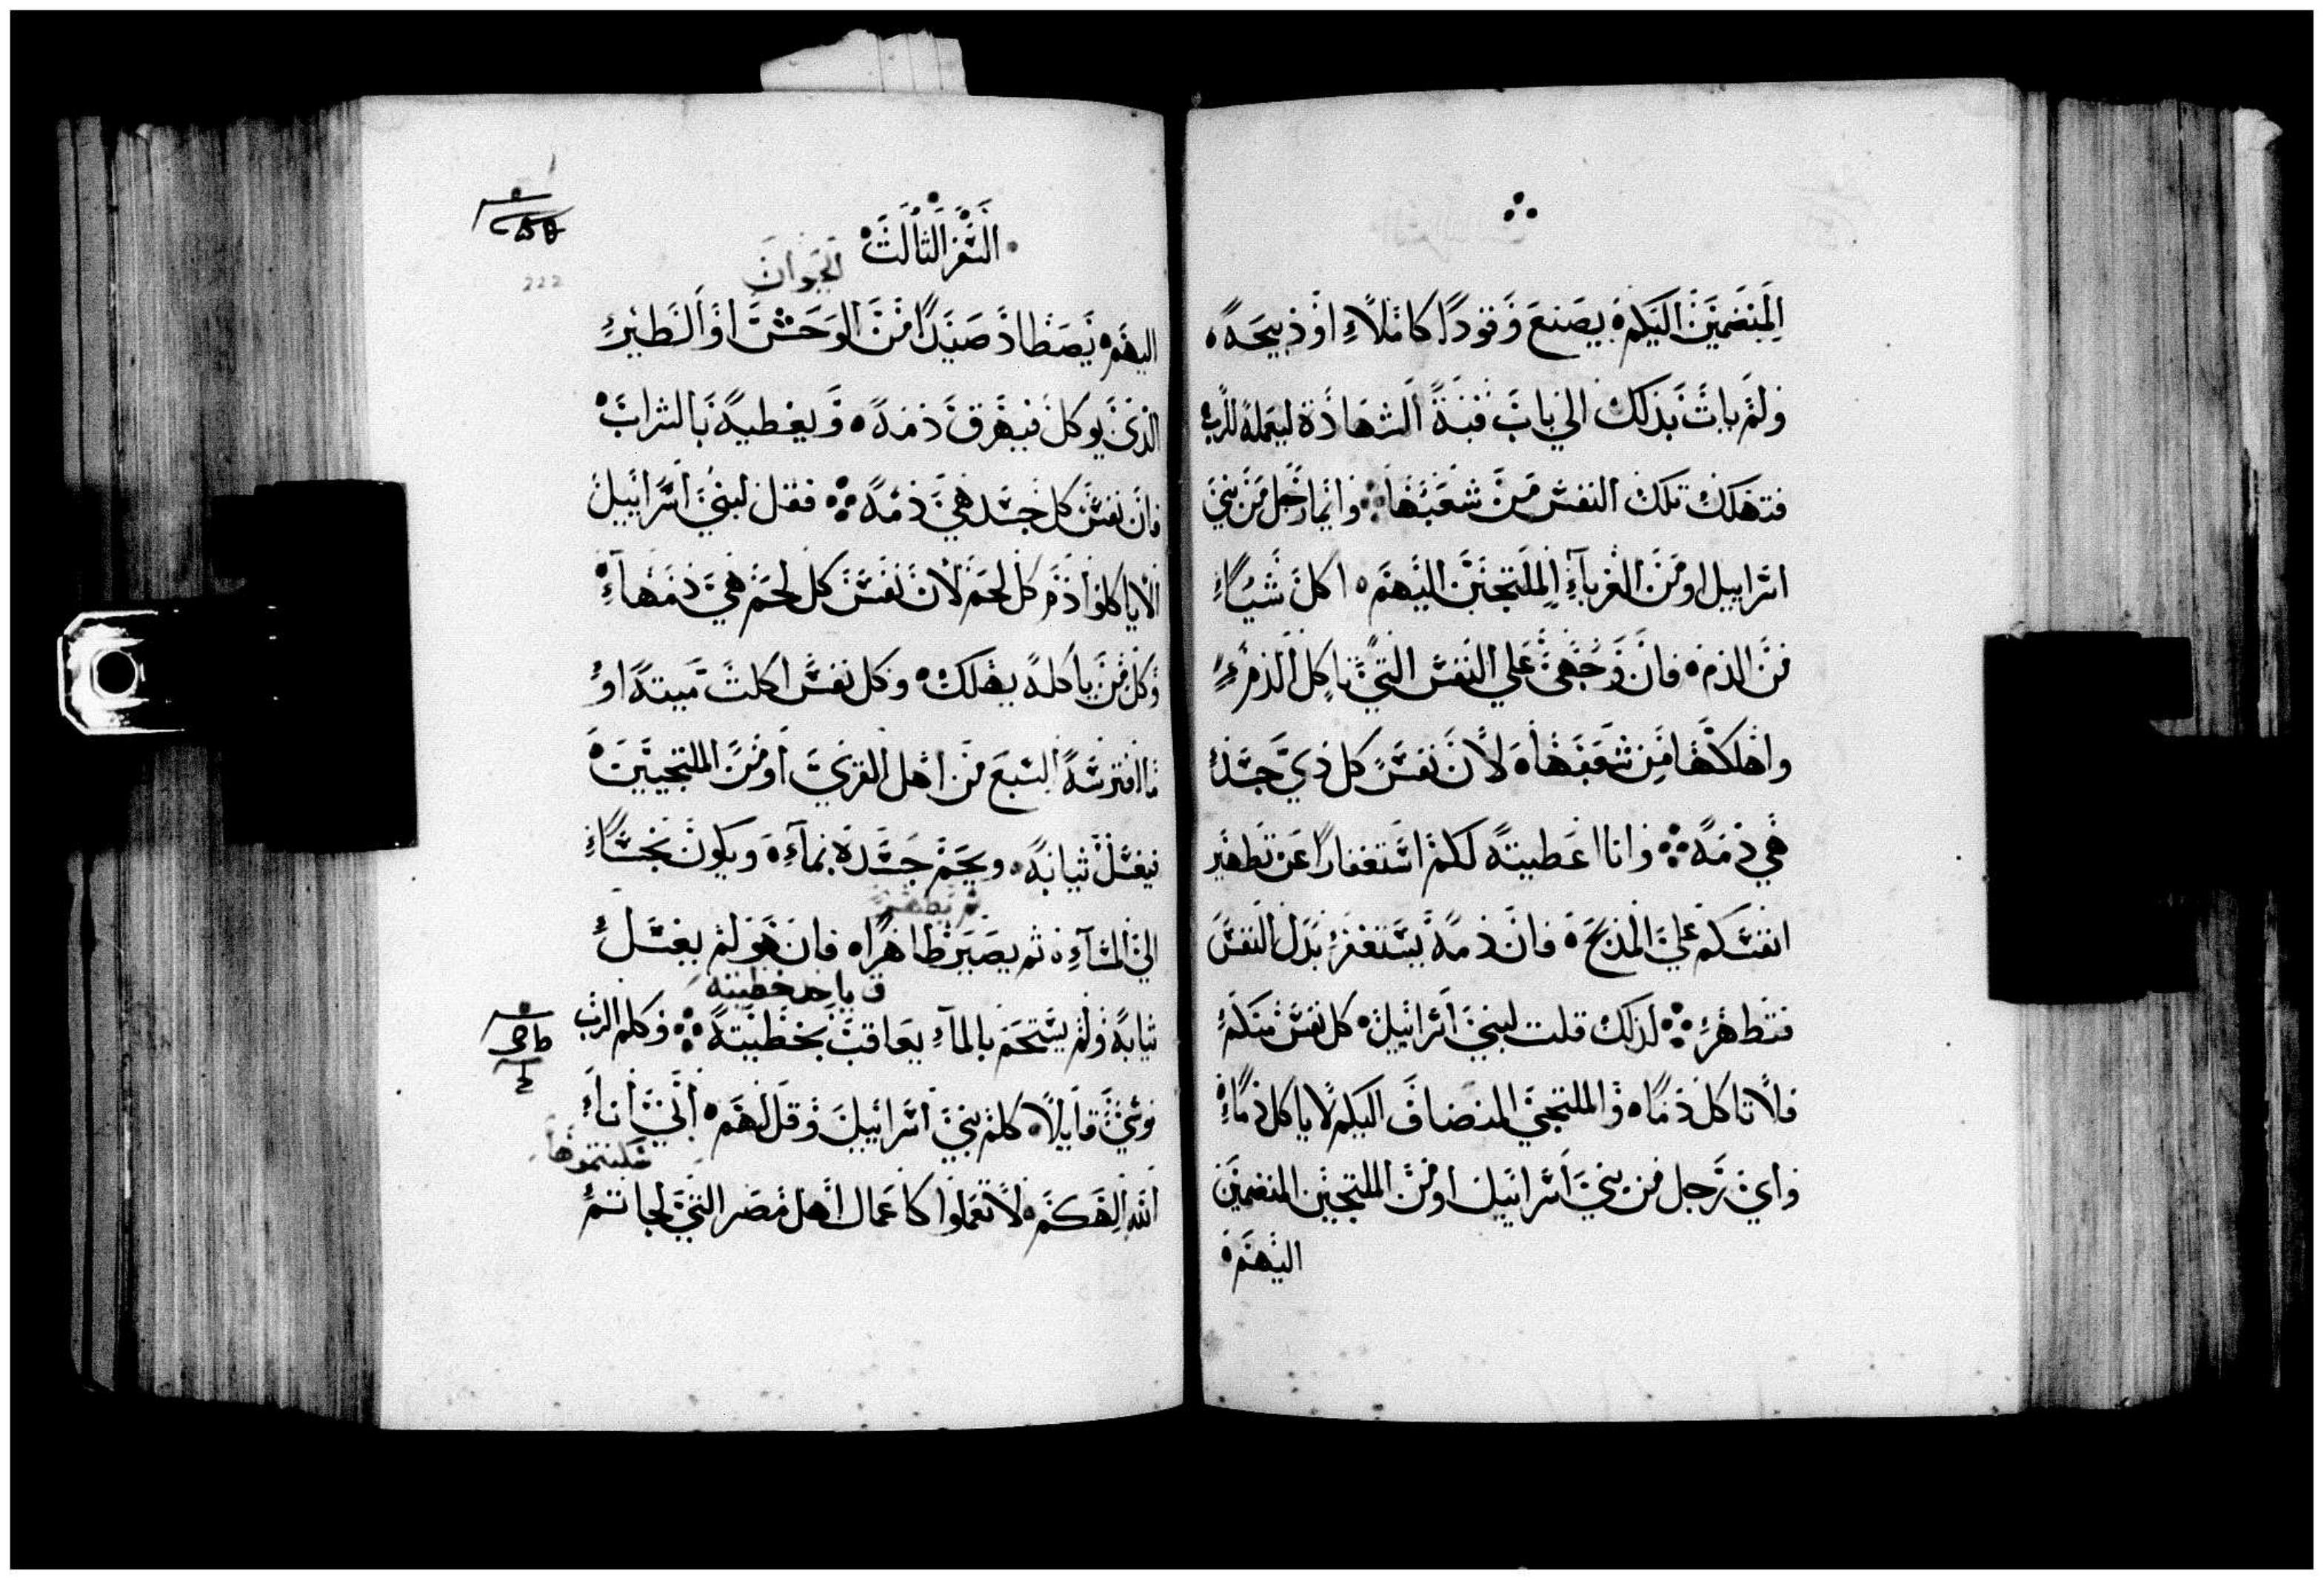 المنضمين اليكم يصنع وقودًا كاملاً او ذبيحه
ولم يات بذلك الي باب قبة الشهادة ليعمله للرب
فتهلك تلك النفس من شعبها وايما رجل من بني
اسراييل او من الغرباء الملتجين اليهم اكل شياً
من الدم فان وجهي علي النفس التي تاكل الدم
واهلكها من شعبها لان نفس كل ذي جسد
هي دمه وانا اعطيته لكم استغفارًا عن تطهير
انفسكم علي المذبح فان دمه يستغفر بدل النفس
فتطهر لذلك قلت لبني اسراييل كل نفس منكم
فلا تاكل دمًا والملتجي المنضاف اليكم لا ياكل دمًا
واي رجل من بني اسراييل او من الملتجين المنضمين
اليهم
السفر الثالث
الحيوان
اليهم يصطاد صيدًا من الوحش او الطير
الذي يوكل فيهرق دمه ويغطيه بالتراب
فان نفس كل جسد هي دمه فقل لبني اسراييل
الا ياكلوا دم كل لحم لان نفس كل لحم هي دمها
وكل من ياكله يهلك وكل نفس اكلت ميتة او
ما افترسه السبع من اهل القري او من الملتجيين
فيغسل ثيابه ويحم جسده بماء ويكون نجسًا
ثم يطهر
الي المساء ثم يصير طاهرًا فان هو لم يغسل
ياخد خطيته
ثيابه ولم يستحم بالماء يعاقب بخطيته وكلم الرب
موسي قايلاً كلم بني اسراييل وقل لهم انني انا
سكنتموها
الله الهكم لا تعملوا كاعمال اهل مصر التي لجاتم
222